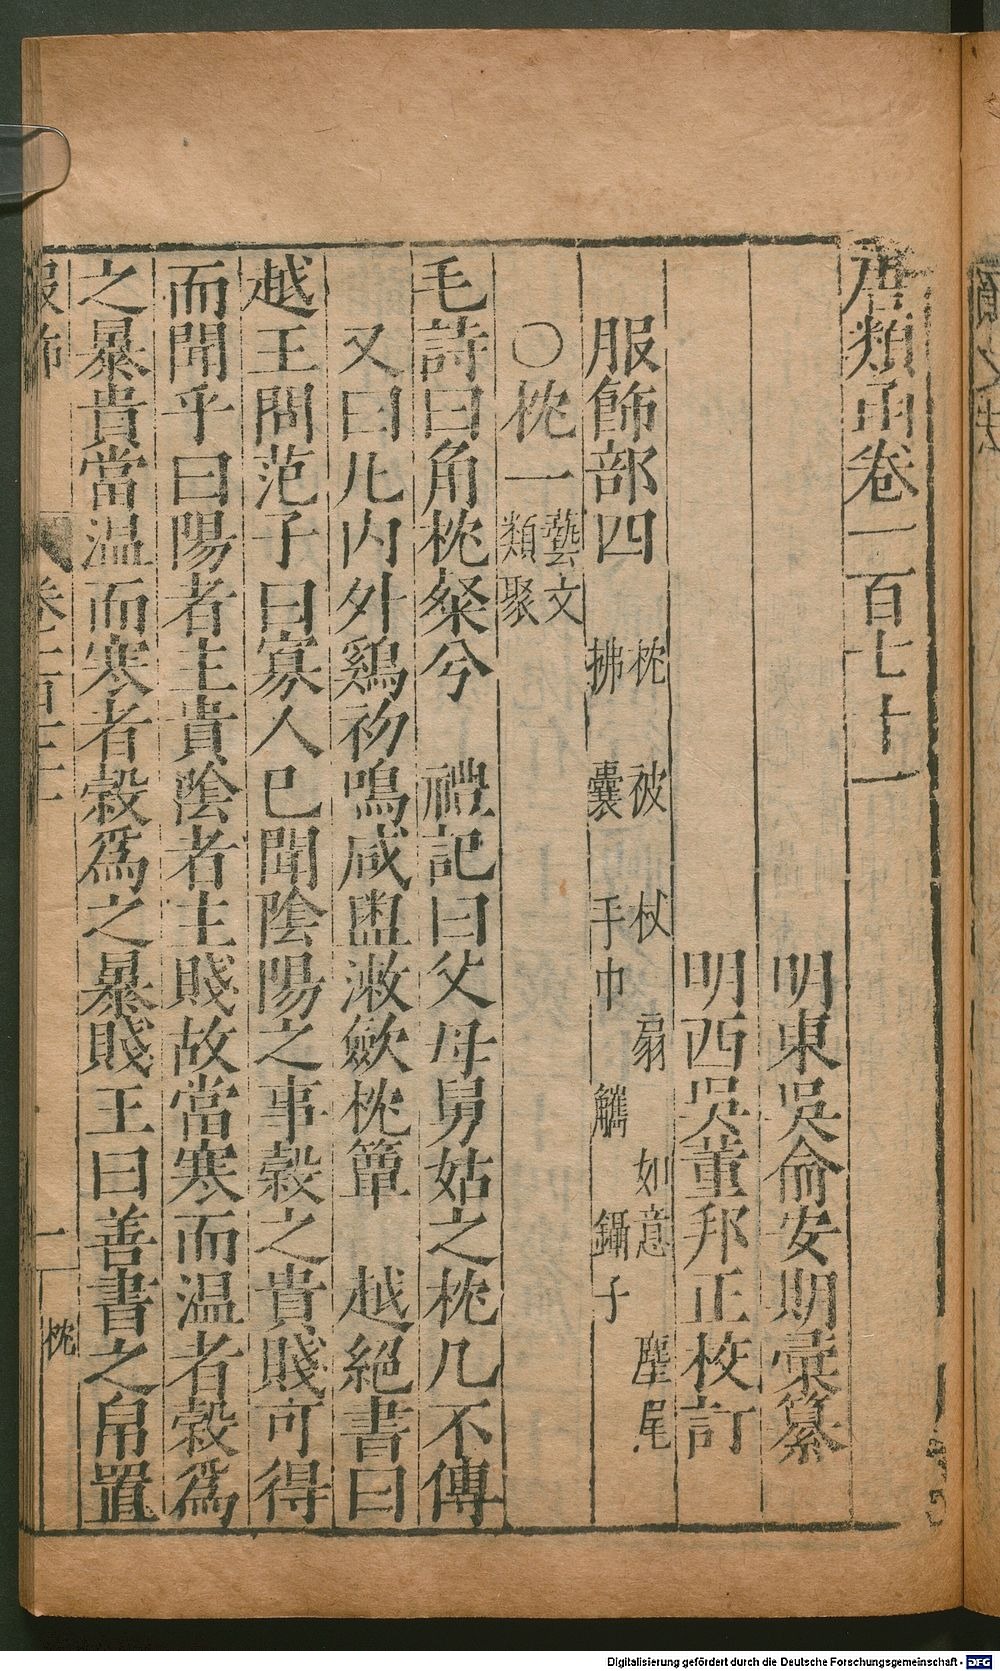 唐類函卷一百七十一
明東吳俞安期彙纂
明西吳董邦正校訂
服飾部四 枕 被 杖 扇 如意 麈尾
拂 囊 手巾 觿 鑷子
○枕一 藝文
類聚
毛詩曰角枕粲兮 禮記曰父母舅姑之枕几不傳
又曰凡內外鷄初鳴咸盥漱斂枕簟 越絕書曰
越王問范子曰寡人已聞陰陽之事穀之貴賤可得
而聞乎曰陽者主貴陰者主賤故當寒而溫者穀爲
之暴貴當温而寒者穀爲之暴賤王曰善書之帛置
服飾 卷一百七十一 一 枕
Digitalisierung gefördert durch die Deutsche Forschungsgemeinschaft - DFG